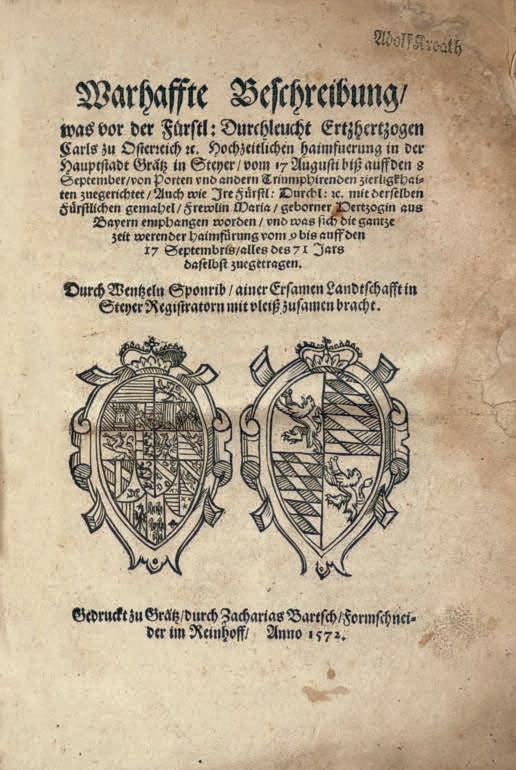 Adolf Kroath
Warhaffte Beschreibung/
was vor der Fürstl: Durchleucht Ertzhertzogen
Carls zu Osterreich ꝛc. Hochzeitlichen haimfuerung in der
Hauptstadt Grätz in Steyer/vom 17 Augusti biß auff den 8
September/von Porten vnd andern Triumphirenden zierligkhai-
ten zuegerichtet/Auch wie Jre Fürstl: Durchl: ꝛc. mit derselben
Fürstlichen gemahel/Frewlin Maria/geborner Hertzogin aus
Bayern emphangen worden/vnd was sich die gantze
zeit werender haimfürung vom 9 bis auff den
17 Septembris/alles des 71 Jars
daselbst zuegetragen.
Durch Wentzeln Sponrib/ainer Ersamen Landtschafft in
Steyer Registratorn mit vleiß zusamen bracht.
Gedruckt zu Grätz/durch Zacharias Bartsch/Formschnei-
der im Reinhoff/ Anno 1572.